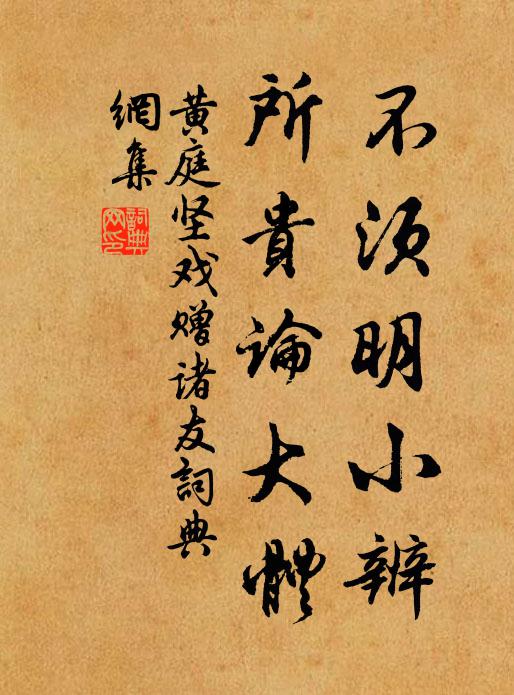 不须明小辨
所貴論大體
黄庭坚戏赠诸友詞典
網集
詞典
网印